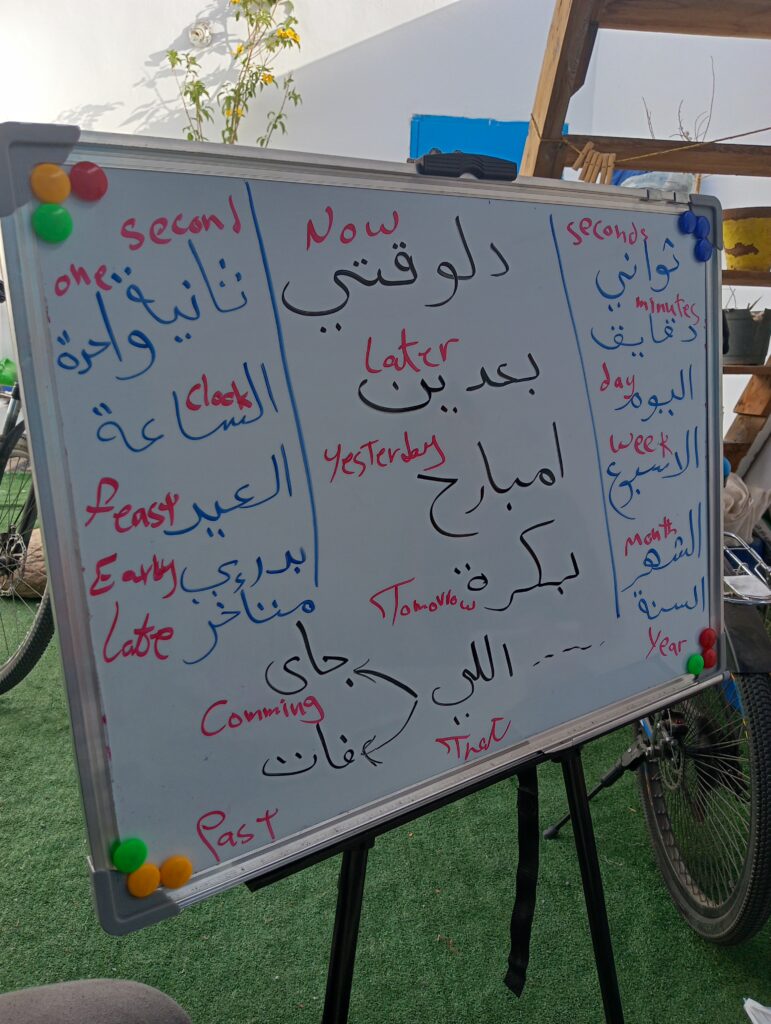 second
one
ثانية
واحدة
Clock
الساعة
feast
العيد
Early
بدري
Late
متأخر
Now
دلوقتي
Later
بعدين
Yesterday
امبارح
Tomorrow
بكرة
جاى
اللي .....
Comming
That
فات
Past
seconds
ثواني
minutes
دقايق
day
اليوم
week
الاسبوع
Month
الشهر
السنة
Year